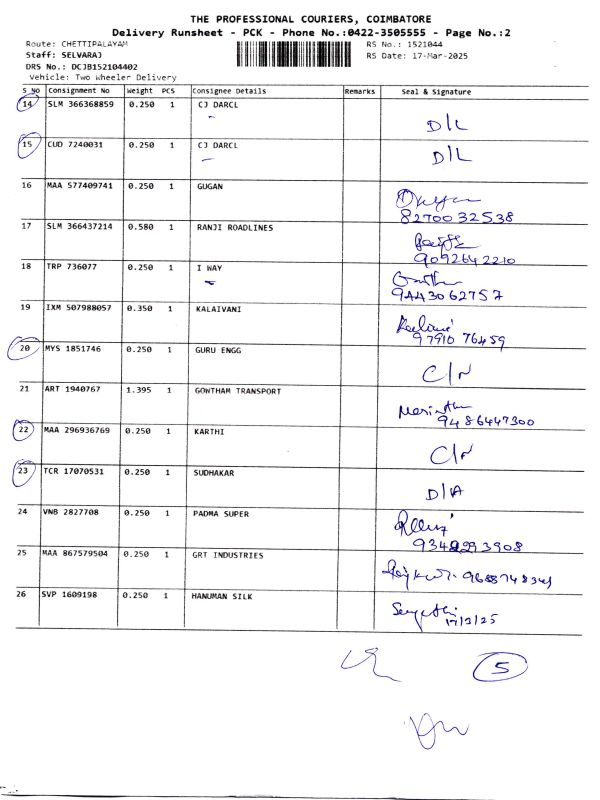 THE PROFESSIONAL COURIERS, COIMBATORE
Delivery Runsheet - PCK - Phone No.:0422-3505555 - Page No.:2
Route: CHETTIPALAYAM RS No.: 1521044
Staff: SELVARAJ RS Date: 17-Mar-2025
DRS No.: DCJB152104402
Vehicle: Two Wheeler Delivery
S No Consignment No Weight PCS Consignee Details Remarks Seal & Signature
14 SLM 366368859 0.250 1 CJ DARCL
D/L
15 CUD 7240031 0.250 1 CJ DARCL
D/L
16 MAA 577409741 0.250 1 GUGAN
8270032538
17 SLM 366437214 0.580 1 RANJI ROADLINES
9092642210
18 TRP 736077 0.250 1 I WAY
9443062757
19 IXM 507988057 0.350 1 KALAIVANI
97910 76459
20 MYS 1851746 0.250 1 GURU ENGG
21 ART 1940767 1.395 1 GOWTHAM TRANSPORT
9486447300
22 MAA 296936769 0.250 1 KARTHI
23 TCR 17070531 0.250 1 SUDHAKAR
D/A
24 VNB 2827708 0.250 1 PADMA SUPER
25 MAA 867579504 0.250 1 GRT INDUSTRIES
26 SVP 1609198 0.250 1 HANUMAN SILK
17/3/25
5